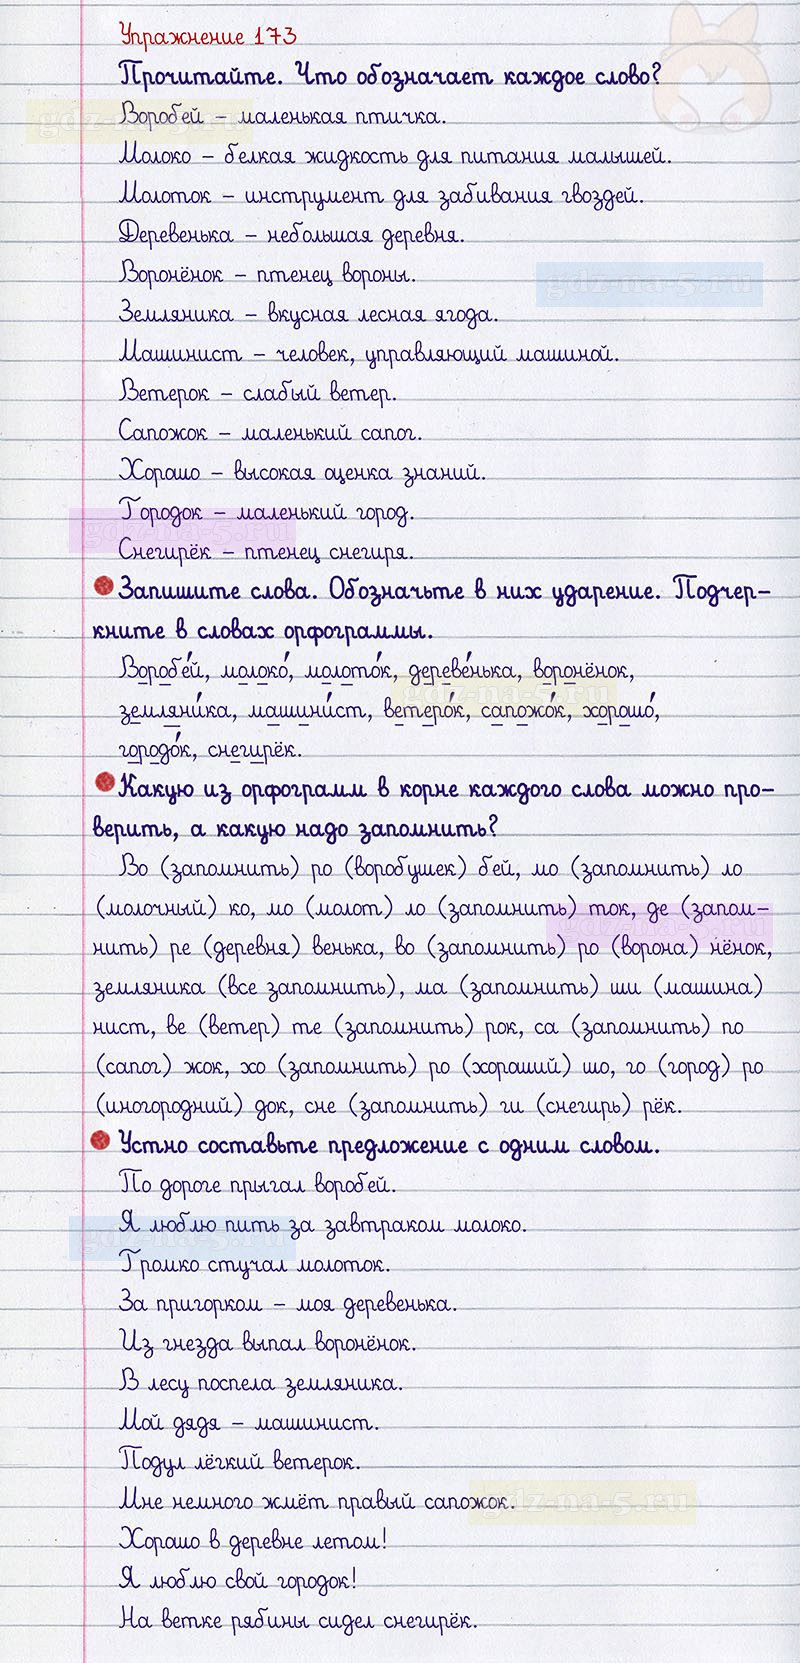 Упражнение 173
Прочитайте. Что обозначает каждое слово?
Воробей – маленькая птичка.
Молоко – белкая жидкость для питания малышей.
Молоток – инструмент для забивания гвоздей.
Деревенька – небольшая деревня.
Воронёнок – птенец вороны.
gdz-na-5.ru
Земляника – вкусная лесная ягода.
Машинист – человек, управляющий машиной.
Ветерок – слабый ветер.
Сапожок – маленький сапог.
Хорошо – высокая оценка знаний.
Городок – маленький город.
gdz-na-5.ru
Снегирёк – птенец снегиря.
Запишите слова. Обозначьте в них ударение. Подчер-
кните в словах орфограммы.
Воробе́й, молоко́, молото́к, дереве́нька, воронёнок,
gdz-na-5.ru
земляни́ка, машини́ст, ветеро́к, сапожо́к, хорошо́,
городо́к, снегирёк.
Какую из орфограмм в корне каждого слова можно про-
верить, а какую надо запомнить?
Во (запомнить) ро (воробушек) бей, мо (запомнить) ло
(молочный) ко, мо (молот) ло (запомнить) ток, де (запом-
gdz-na-5.ru
нить) ре (деревня) венька, во (запомнить) ро (ворона) нёнок,
земляника (все запомнить), ма (запомнить) ши (машина)
нист, ве (ветер) те (запомнить) рок, са (запомнить) по
(сапог) жок, хо (запомнить) ро (хороший) шо, го (город) ро
(иногородний) док, сне (запомнить) ги (снегирь) рёк.
Устно составьте предложение с одним словом.
По дороге прыгал воробей.
Я люблю пить за завтраком молоко.
gdz-na-5.ru
Громко стучал молоток.
За пригорком – моя деревенька.
Из гнезда выпал воронёнок.
В лесу поспела земляника.
Мой дядя – машинист.
Подул лёгкий ветерок.
Мне немного жмёт правый сапожок.
gdz-na-5.ru
Хорошо в деревне летом!
Я люблю свой городок!
На ветке рябины сидел снегирёк.